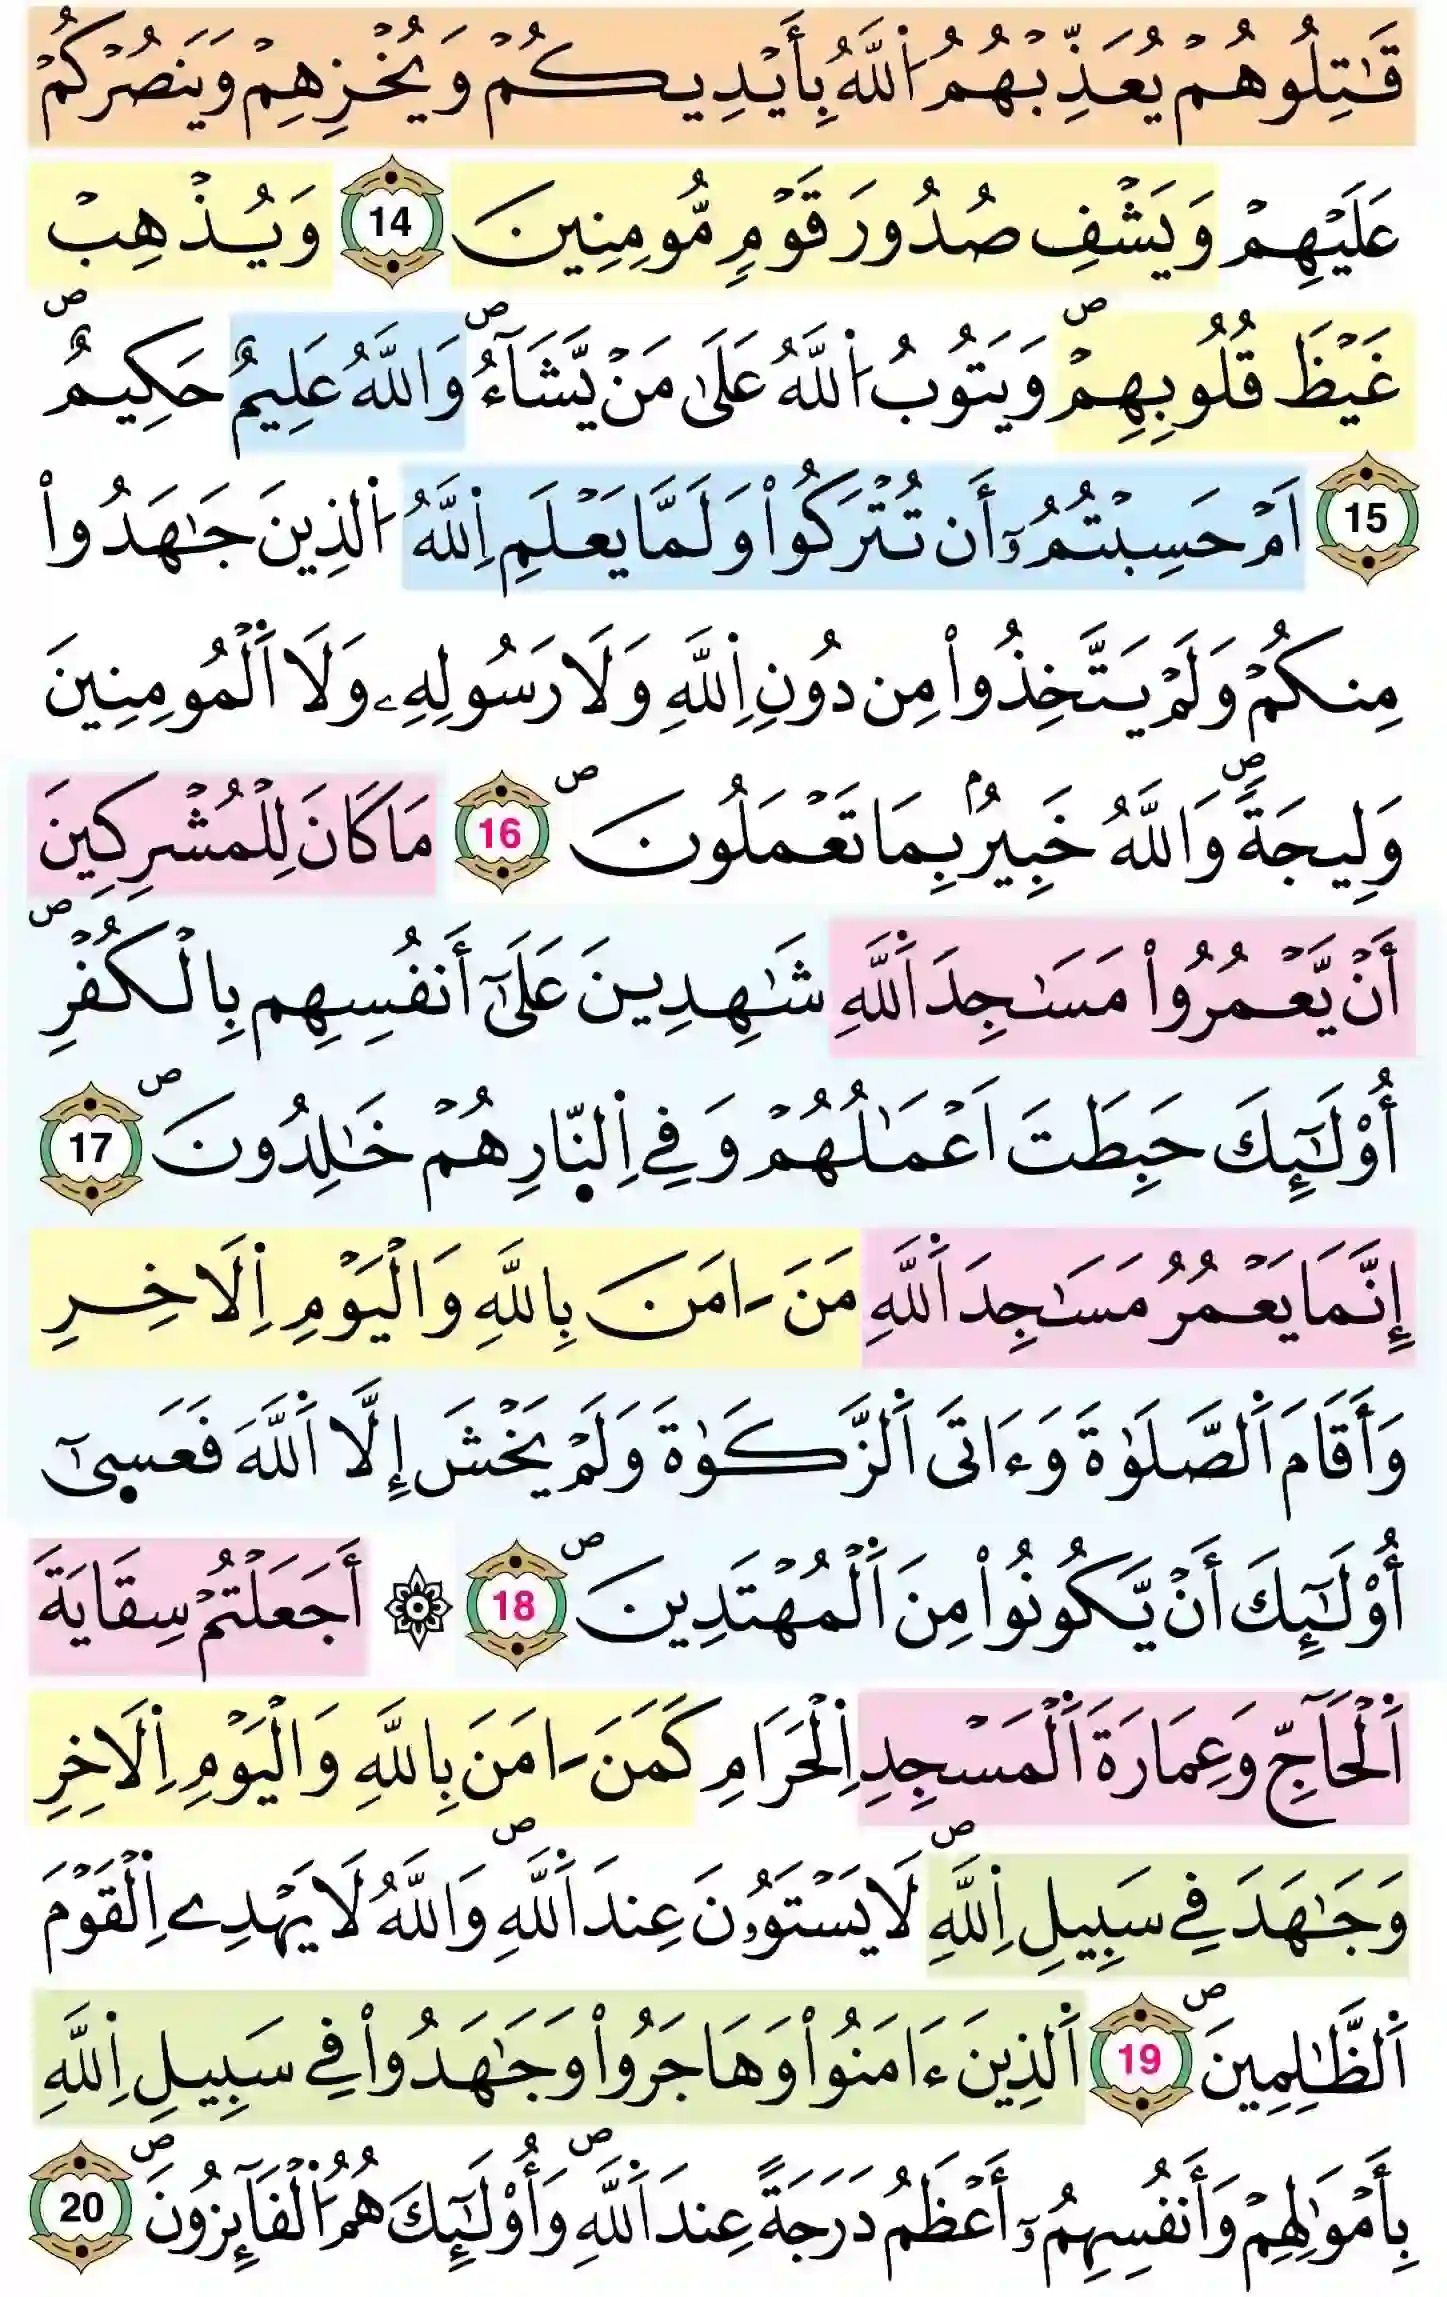 قَٰتِلُوهُمْ يُعَذِّبْهُمُ اُ۬للَّهُ بِأَيْدِيكُمْ وَيُخْزِهِمْ وَيَنصُرْكُمْ
عَلَيْهِمْ وَيَشْفِ صُدُورَ قَوْمٖ مُّومِنِينَ 14 وَيُذْهِبْ
غَيْظَ قُلُوبِهِمْۖ وَيَتُوبُ اُ۬للَّهُ عَلَىٰ مَنْ يَّشَآءُۖ وَاللَّهُ عَلِيمٌ حَكِيمٌۖ
15 اَمْ حَسِبْتُمُۥٓ أَن تُتْرَكُواْ وَلَمَّا يَعْلَمِ اِ۬للَّهُ اُ۬لذِينَ جَٰهَدُواْ
مِنكُمْ وَلَمْ يَتَّخِذُواْ مِن دُونِ اِ۬للَّهِ وَلَا رَسُولِهِۦ وَلَا اَ۬لْمُومِنِينَ
وَلِيجَةٗۖ وَاللَّهُ خَبِيرُۢ بِمَا تَعْمَلُونَۖ 16 مَا كَانَ لِلْمُشْرِكِينَ
أَنْ يَّعْمُرُواْ مَسَٰجِدَ اَ۬للَّهِ شَٰهِدِينَ عَلَىٰٓ أَنفُسِهِم بِالْكُفْرِۖ
أُوْلَٰٓئِكَ حَبِطَتَ اَعْمَٰلُهُمْ وَفِے اِ۬لنّ۪ارِ هُمْ خَٰلِدُونَۖ 17
إِنَّمَا يَعْمُرُ مَسَٰجِدَ اَ۬للَّهِ مَنَ اٰمَنَ بِاللَّهِ وَالْيَوْمِ اِ۬لَاخِرِ
وَأَقَامَ اَ۬لصَّلَوٰةَ وَءَاتَى اَ۬لزَّكَوٰةَ وَلَمْ يَخْشَ إِلَّا اَ۬للَّهَ فَعَس۪ىٰٓ
أُوْلَٰٓئِكَ أَنْ يَّكُونُواْ مِنَ اَ۬لْمُهْتَدِينَۖ 18 ۞ أَجَعَلْتُمْ سِقَايَةَ
اَ۬لْحَآجِّ وَعِمَارَةَ اَ۬لْمَسْجِدِ اِ۬لْحَرَامِ كَمَنَ اٰمَنَ بِاللَّهِ وَالْيَوْمِ اِ۬لَاخِرِ
وَجَٰهَدَ فِے سَبِيلِ اِ۬للَّهِۖ لَا يَسْتَوُۥنَ عِندَ اَ۬للَّهِۖ وَاللَّهُ لَا يَهْدِے اِ۬لْقَوْمَ
اَ۬لظَّٰلِمِينَۖ 19 اَ۬لذِينَ ءَامَنُواْ وَهَاجَرُواْ وَجَٰهَدُواْ فِے سَبِيلِ اِ۬للَّهِ
بِأَمْوَٰلِهِمْ وَأَنفُسِهِمُۥٓ أَعْظَمُ دَرَجَةً عِندَ اَ۬للَّهِۖ وَأُوْلَٰٓئِكَ هُمُ اُ۬لْفَآئِزُونَۖ 20